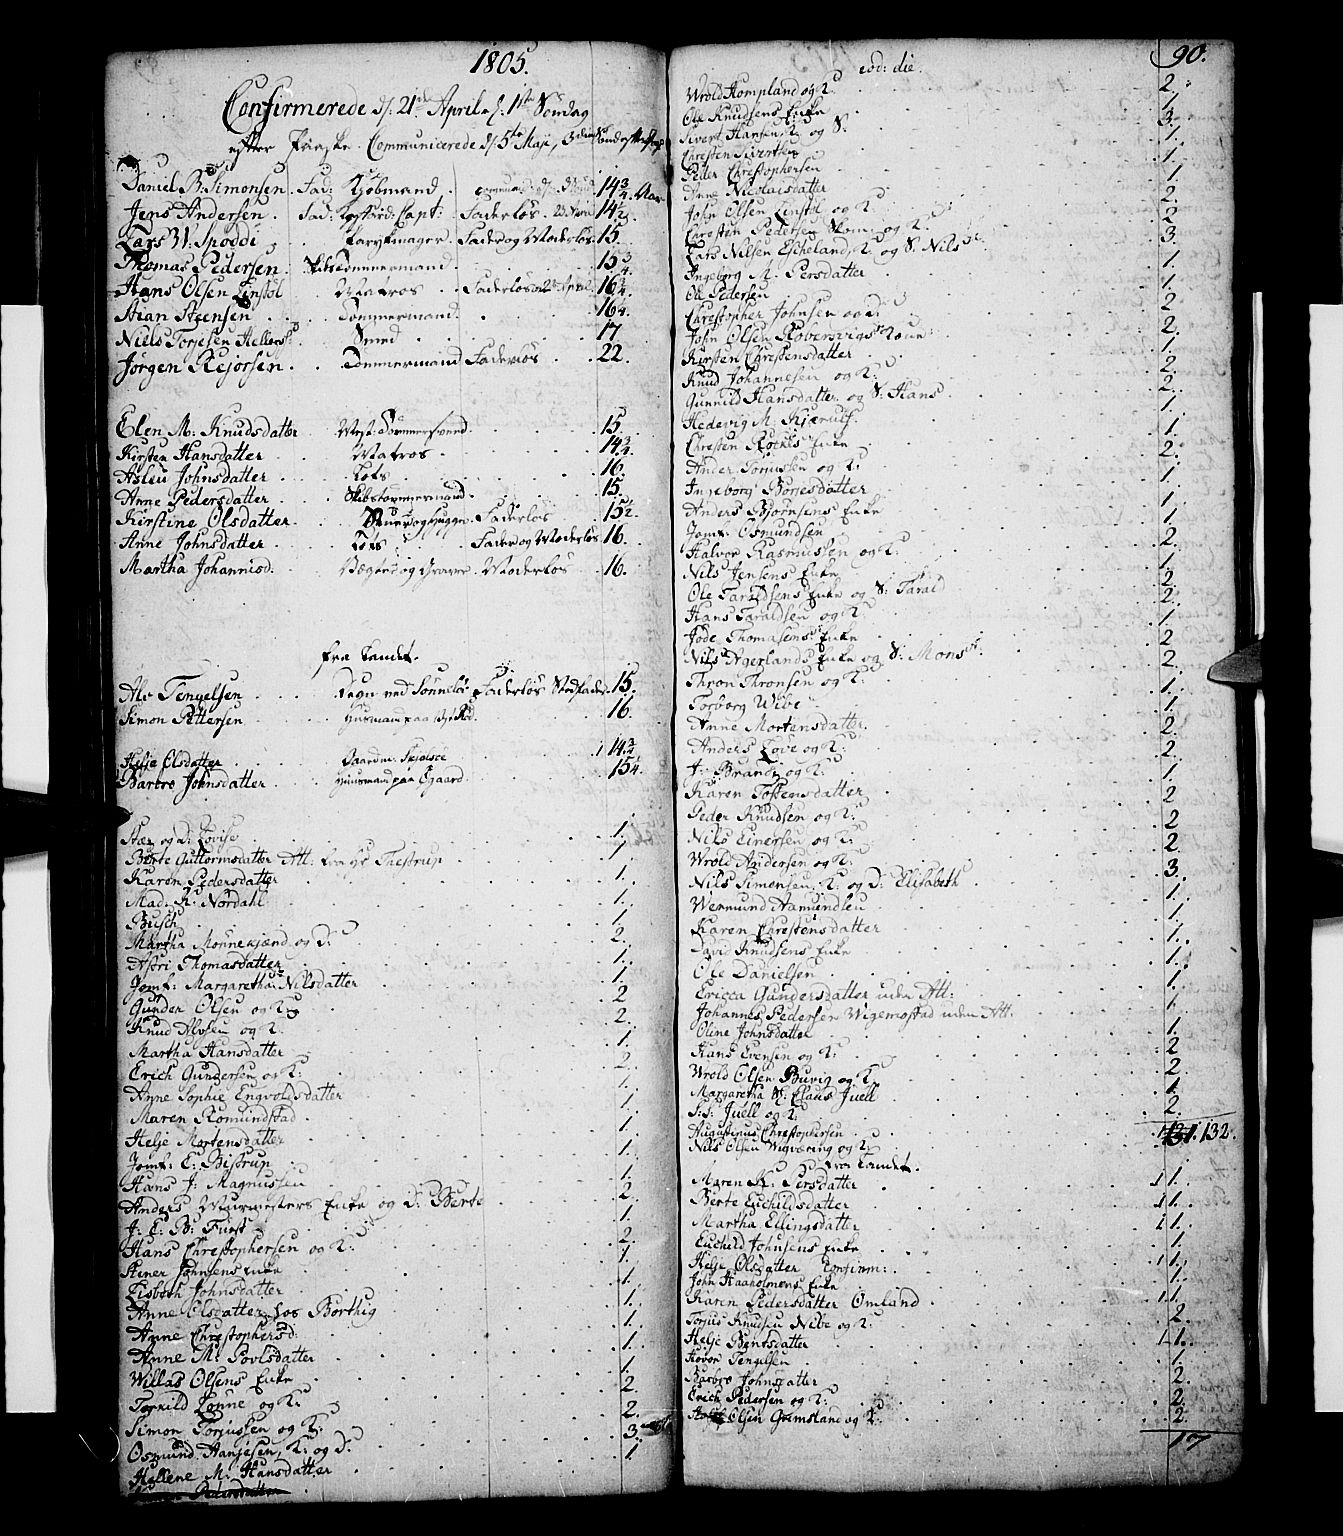 1805.
Confirmerede d: 21de April d: 1ste Søndag
efter Paaske. Communicerede d: 5te Maji,
Daniel B: Simonsen. Fad: Kjøbmand. 14 3/4 Aar
Jens Andersen. Fad: Capt: Faderløs 14 1/2.
Lars W: Spoddi Faderog Moderløs 15.
Thomas Pedersen. Skibstømmermand. 15 3/4
Hans Olsen Linstøl Matros Faderløs 16 3/4
Stian Steensen Tømmermand. 16 1/4.
Niels Torjesen Smed 17
Jørgen Rejorsen. Tømmermand Faderløs 22.
Elen M: Knudsdatter 15.
Kirsten Hansdatter Matros 14 3/4.
Aslau Johnsdatter Lots 16
Anne Pedersdatter Skibstømmermand. 15.
Kirstine Olsdatter. Faderløs 15 1/2.
Anne Johnsdatter Lots Fader og Moderløs 16.
Martha Johannisd. Moderløs 16.
fra Landet.
Alv Tengelsen Faderløs Stedfader 15.
Simon Pettersen Huusmand paa 16.
Helje Olsdatter 14 3/4
Barbro Johnsdatter Huusmand paa Egaard 15 1/4.
og D: Lovise 1.
Berte Guttormsdatter Att: fra Hr Thestrup 1
Karen Pedersdatter 1.
Mad. K: Nordahl 1.
Busch 1
Martha Monnekjænd og D: 2.
Astri Thomasdatter 1.
Jomf: Margaretha Nilsdatter 1
Gunder Olsen og K: 2
Knud Alvsen og K. 2.
Martha Hansdatter 1.
Erich Gundersen og K: 2.
Anne Sophie Engvoldsdatter 1.
Maren Romundstad 1
Helje Mortensdatter 1.
Jomf: E: Bistrup 1.
Hans J: Magnussen 1.
Anders Murmesters Enke og D: Berte 2.
J: C: B: Furst 1.
Hans Christophersen og K: 2.
Stener Johnsens Enke 1.
Lisbeth Johnsdatter 1.
Anne Olsdatter hos Borthig 1.
Anne Christophersd: 1.
Anne M: Povlsdatter 1.
Willas Olsens Enke 1.
Torkild Lønne og K: 2.
Simon Torjussen og K: 2.
Osmund Aanjesen, K: og D: 3.
Hellene M: Hansdatter 1.
Pedersdatter
90.
eod: die.
Wrold Hompland og K: 2.
Ole Knudsens Enke 1.
Sivert Hansen, K: og S: 3.
Christen Sivertsen 1.
Peder Christophersen 1.
Anne Nicolaisdatter 1
John Olsen Linstøl og K: 2.
Christen Pedersen og K: 2
Lars Nilsen Escheland, K: og S: Nils 3.
Ingeborg M: Persdatter 1.
Ole Pedersen 1.
Christopher Johnsen og D: 2
John Olsen Robersvigs Kone 2.
Kirsten Christensdatter 1.
Knud Johannesen og K: 2.
Gunnild Hansdatter og S: Hans 2.
Hedevig M: Kjærulf. 1.
Christen Roeks Enke 1.
Ander Tønussen og K: 2.
Ingeborg Børjesdatter 1.
Anders Bjørnsens Enke 1
Jomf: Osmundsen 1
Halvor Rasmussen og K: 2.
Nils Jensens Enke 1.
Ole Taraldsens Enke og S: Tarald 2.
Hans Taraldsen og K: 2.
Jode Thomasens Enke 1.
Nils Agerlands Enke og S: Mons 2
Thron Thronsen og K: 2.
Torborg Wibe 1.
Anne Mortensdatter 1.
Anders Love og K: 2.
J: Brandt og K: 2.
Karen Tostensdatter 1.
Peder Knudsen og K: 2.
Nils Einersen og K: 2
Wrold Andersen og K: 2.
Nils Simonsen, K: og D: Elisabeth 3.
Wermund Aamundsen 1.
Karen Christensdatter 1.
David Knudsens Enke 1.
Ole Danielsen 1.
Ericca Gundersdatter uden Att: 1.
Johannes Pedersen Wigemostad uden Att. 1.
Oline Johnsdatter 1.
Hans Evensen og K: 2
Wrold Olsen Buvig og K: 2.
Margaretha K: Claus Juell 1
S: S: Juell og K: 2.
Augustinus Christophersen
Nils Olsen Wigværing og K: 131. 132.
fra Landet.
Maren K: Persdatter 1.
Berte Euchildsdatter 1.
Martha Ellingsdatter 1.
Euchild Johnsens Enke 1.
Helje Olsdatter Confirm: 1.
John Haaholmens Enke 1.
Karen Pedersdatter Omland 1.
Torjus Knudsen Nibe og K: 2.
Helje Bentsdatter 1.
Hover Tengelsen 1.
Barbro Johnsdatter 2.
Erich Pedersen og K: 2.
Olsen Grimsland og K: 2
17